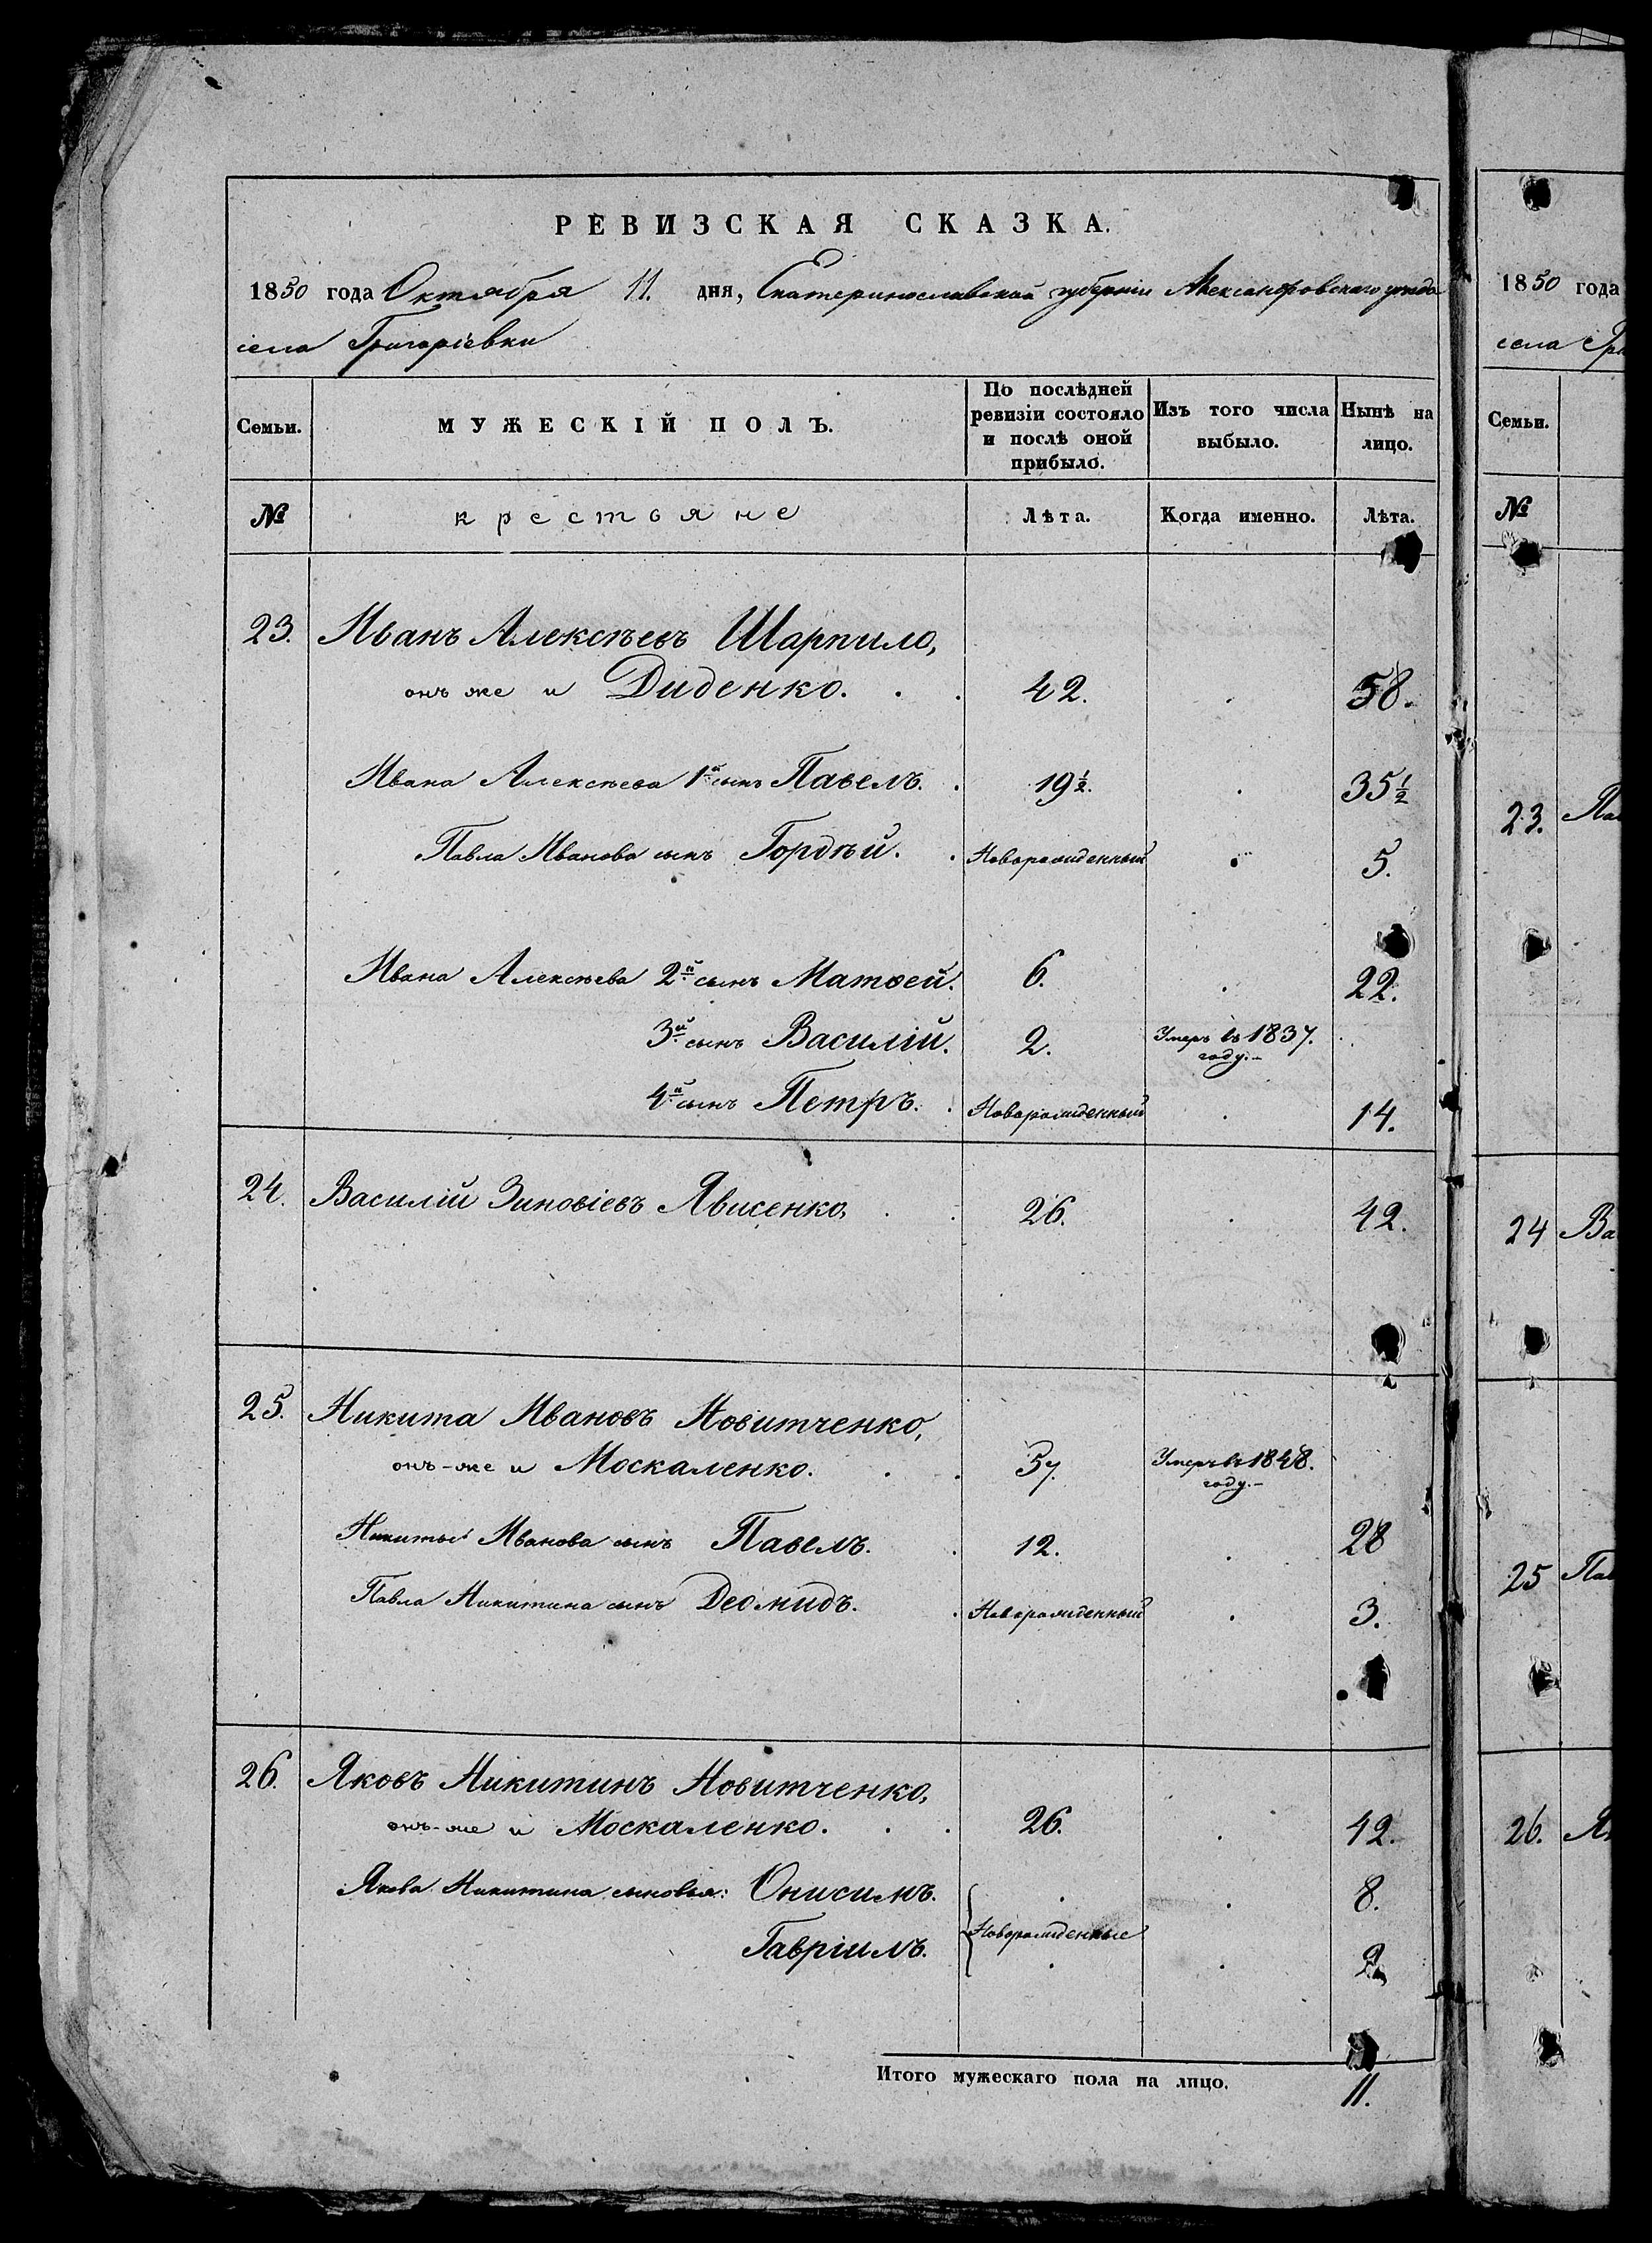 РЕВИЗСКАЯ СКАЗКА.
1850 года Октября 11. дня, Екатеринославской губерніи Александровскаго уезда
села Григоріевки
Семьи. МУЖЕСКІЙ ПОЛЪ. По послѣдней ревизіи состояло и послѣ оной прибыло. Изъ того числа выбыло. Нынѣ на лицо.
№ крестьяне Лѣта. Когда именно. Лѣта.
23. Иванъ Алексѣевъ Шарпило,
онъ же и Диденко. . . 42. . 58.
Ивана Алексѣева 1й сынъ Павелъ. . 19½. . 35½
Павла Иванова сынъ Гордѣй. . Новорожденный . 5.
Ивана Алексѣева 2й сынъ Матвей. 6. . 22.
3й сынъ Василій. 2. Умеръ въ 1837. году.-
4й сынъ Петръ. . Новорожденный . 14.
24. Василій Зиновіевъ Явисенко, . . 26. . 42.
25. Никита Ивановъ Новитченко,
онъ-же и Москаленко. . . 37. Умеръ въ 1848. году.-
Никиты Иванова сынъ Павелъ. . 12. . 28
Павла Никитина сынъ Деомидъ. . Новорожденный . 3.
26. Яковъ Никитинъ Новитченко,
онъ-же и Москаленко. . . 26. . 42.
Якова Никитина сыновья: Онисимъ. . . 8.
Новорожденные
Гавріилъ. . . 2.
Итого мужескаго пола на лицо. 11.
1850 года
села Гри
Семьи.
№
23. Пав
24 Ва
25 Пав
26. Як